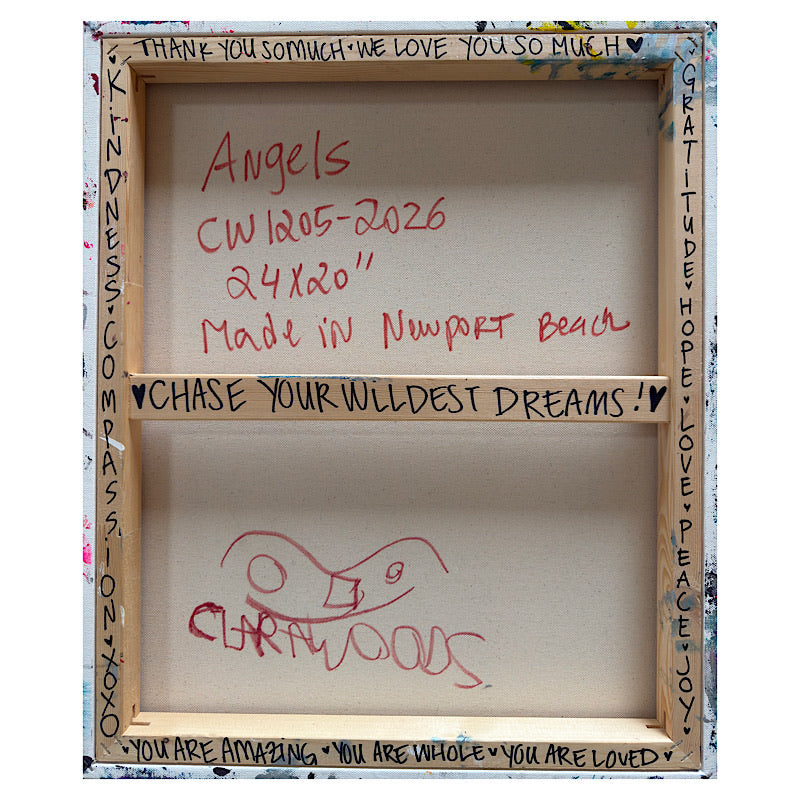 THANK YOU SO MUCH ♥ WE LOVE YOU SO MUCH ♥
♥ KiNDNESS ♥ COMPASSiON ♥ XOXO
Angels
CW1205-2026
24X20"
Made iN NewPORT Beach
♥ CHASE YOUR WiLDEST DREAMS! ♥
CLARAWOODS
♥ GRATiTUDE ♥ HOPE ♥ LOVE ♥ PEACE ♥ JOY ♥
♥ YOU ARE AMAZiNG ♥ YOU ARE WHOLE ♥ YOU ARE LOVED ♥